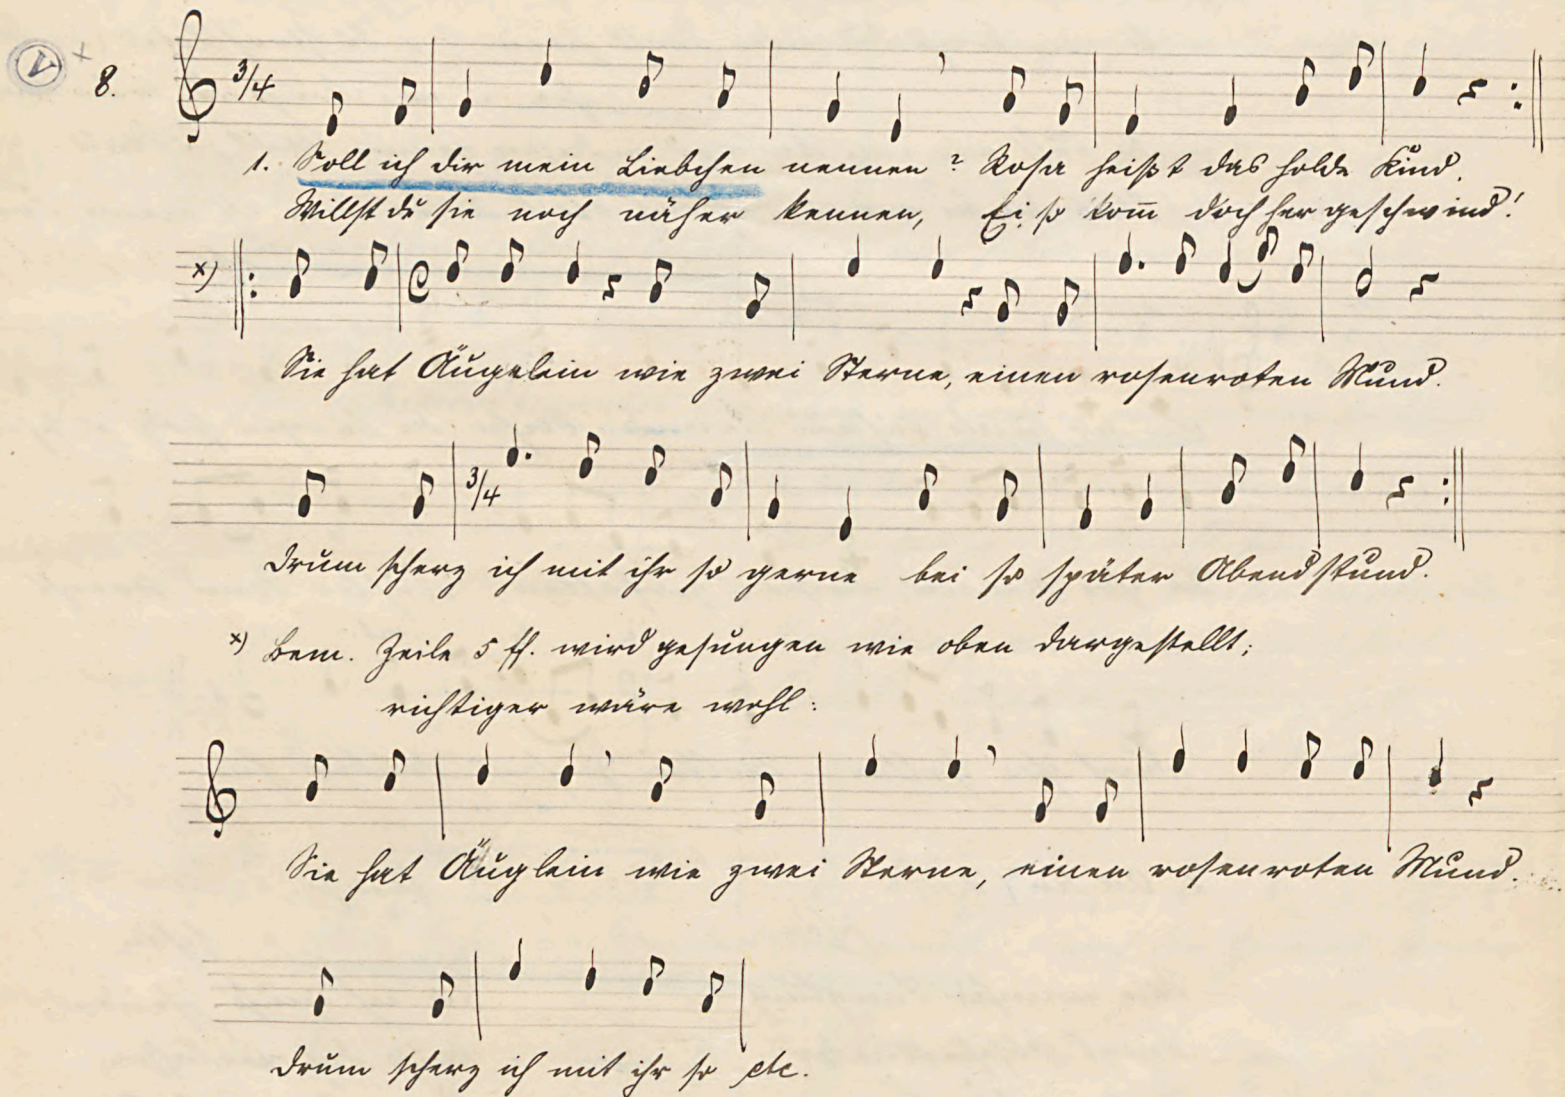 V +
8.
3/4
1. Soll ich dir mein Liebchen nennen? Rosa heißt das holde Kind.
Willst du sie noch näher kennen, Ei, so kom̅ doch her geschwind!
x)
Sie hat Äugelein wie zwei Sterne, einen rosenroten Mund.
3/4
Drum scherz ich mit ihr so gerne bei so später Abendstund.
x) Bem. Zeile 5 ff. wird gesungen wie oben dargestellt;
richtiger wäre wohl:
Sie hat Äuglein wie zwei Sterne, einen rosenroten Mund.
Drum scherz ich mit ihr so etc.